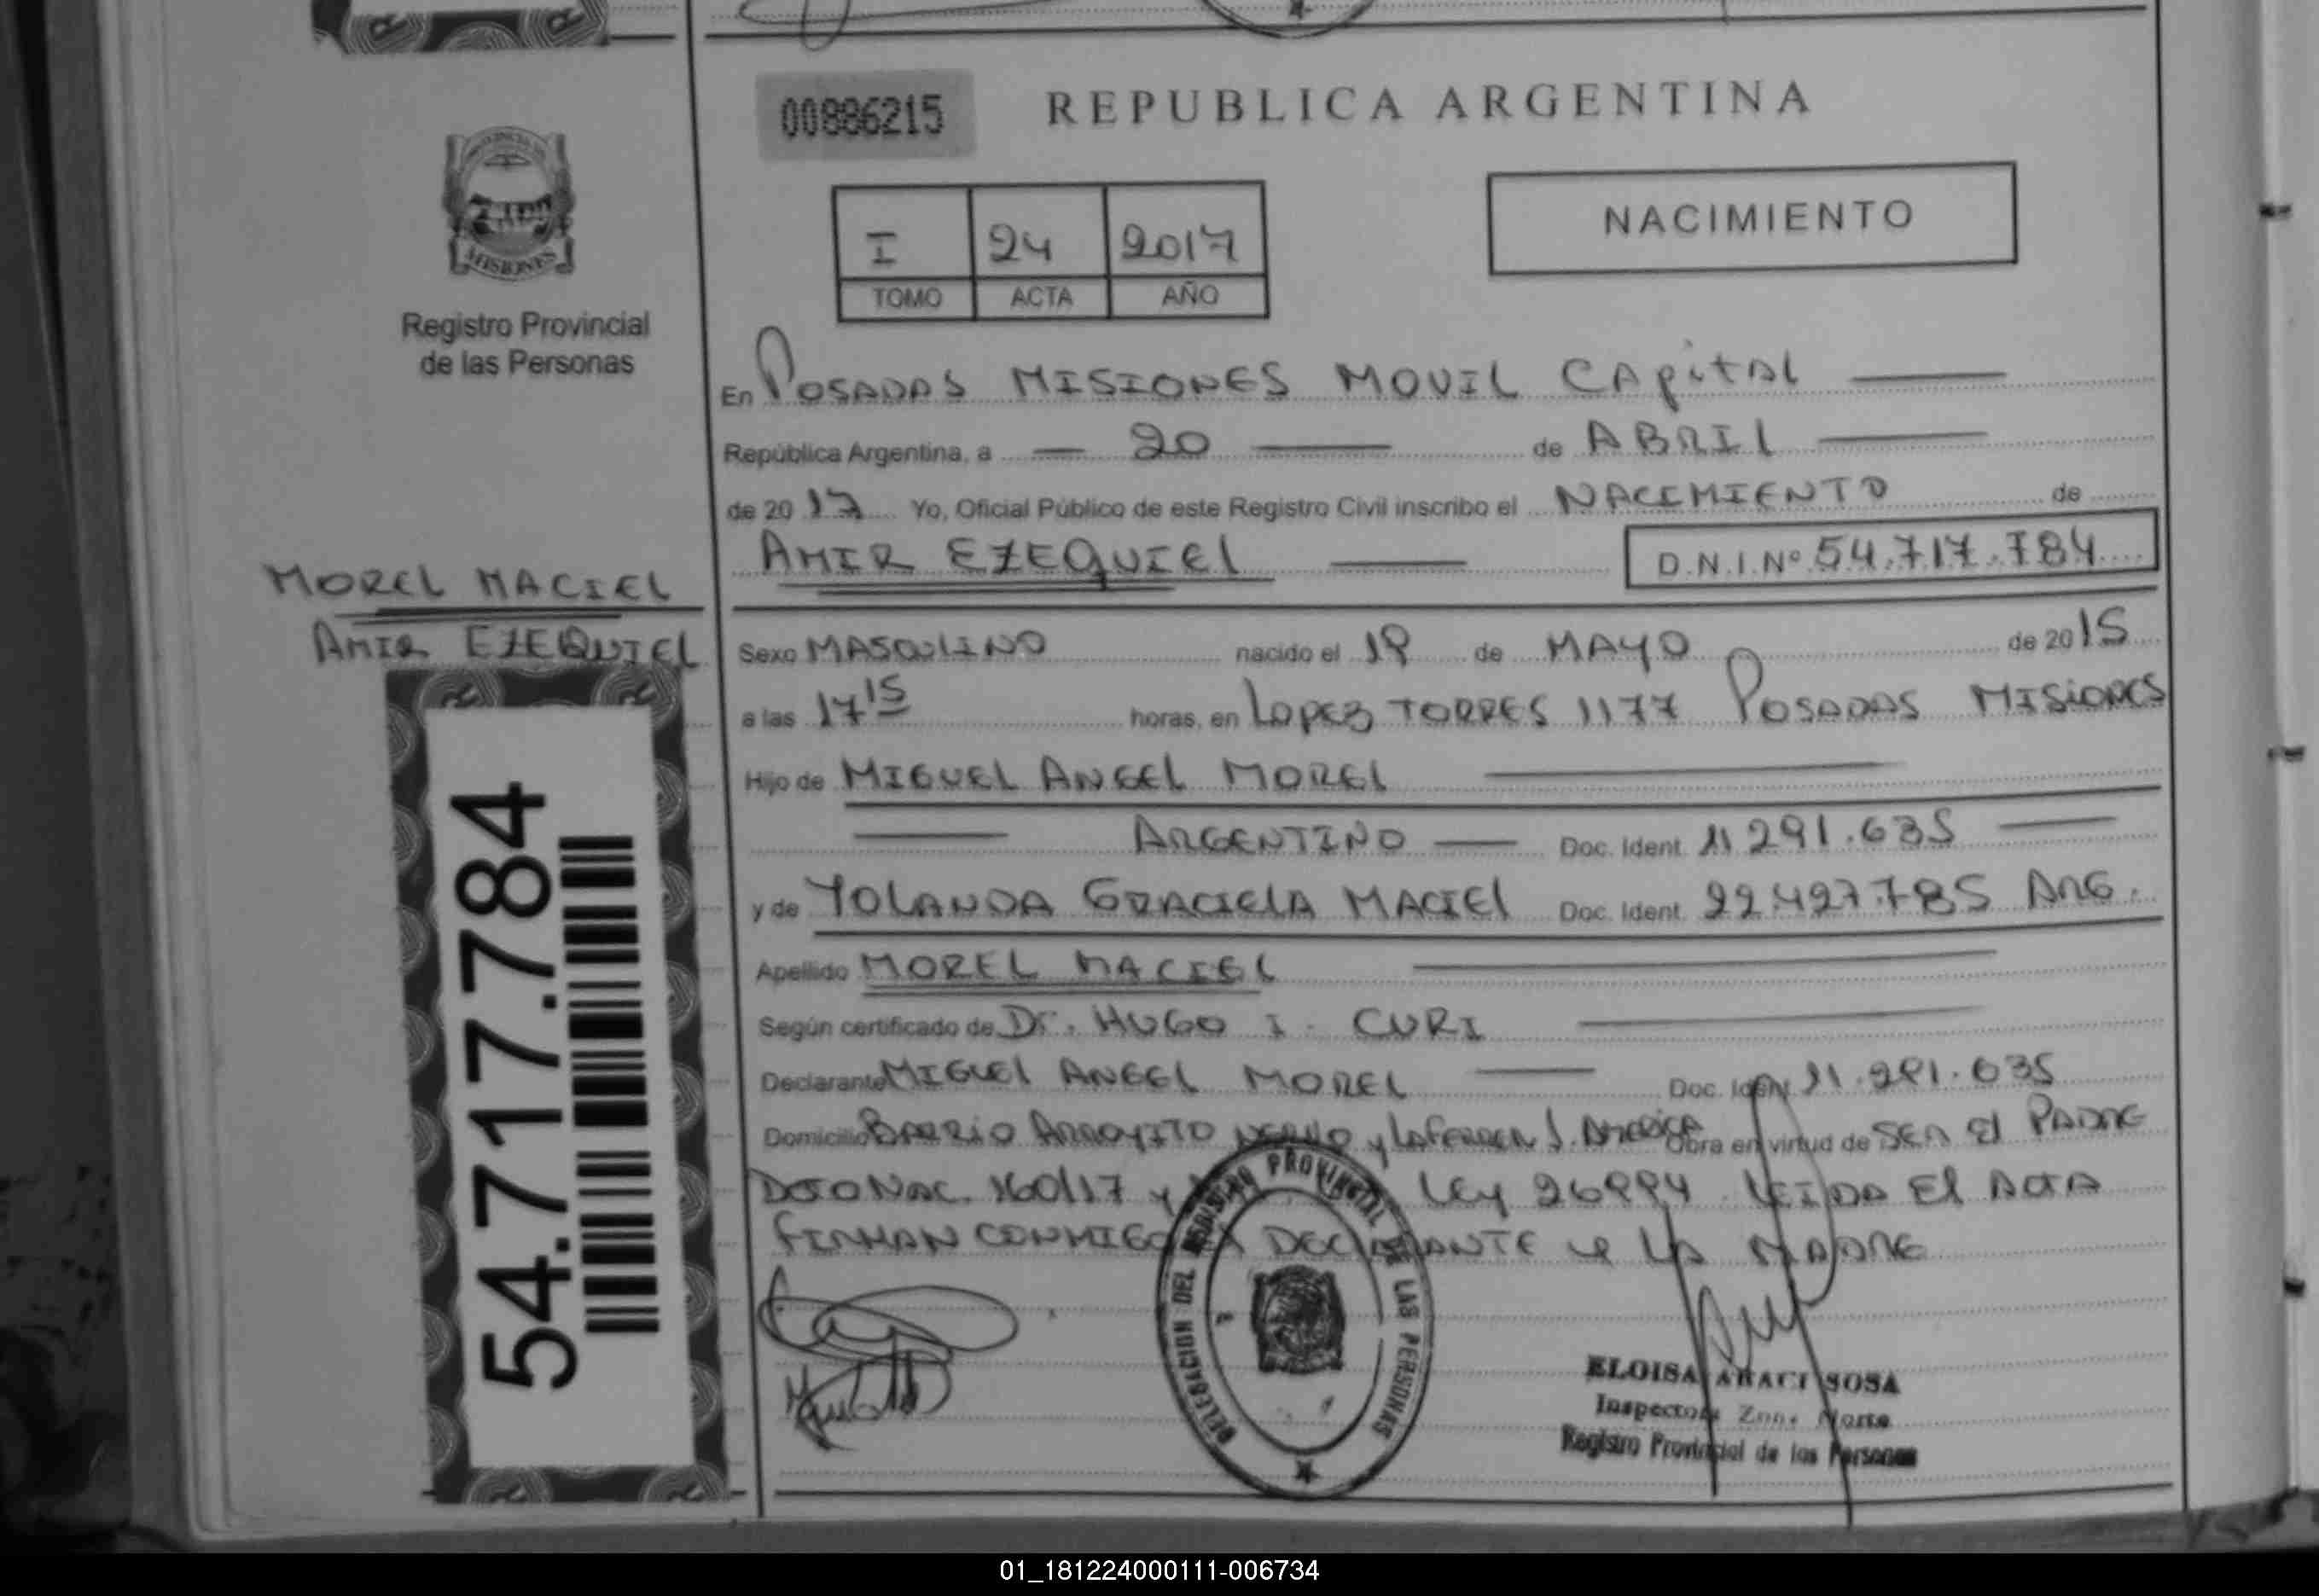 00886215
REPUBLICA ARGENTINA
MISIONES
Registro Provincial
de las Personas
I 24 2017
TOMO ACTA AÑO
NACIMIENTO
En POSADAS MISIONES MOVIL CAPITAL
República Argentina, a 20 de ABRIL
de 2017 Yo, Oficial Público de este Registro Civil inscribo el NACIMIENTO de
AMIR EZEQUIEL D.N.I.Nº 54.717.784
MOREL MACIEL
AMIR EZEQUIEL
54.717.784
Sexo MASCULINO nacido el de MAYO de 2015
a las 17 15 horas, en LOPEZ TORRES 1177 POSADAS MISIONES
Hijo de MIGUEL ANGEL MOREL
ARGENTINO Doc. Ident. 11 291.635
y de YOLANDA GRACIELA MACIEL Doc. Ident. 22.427.785 ARG.
Apellido MOREL MACIEL
Según certificado de Dr. HUGO I. CURI
Declarante MIGUEL ANGEL MOREL Doc. Ident. 11.291.635
Domicilio BARRIO ARROYITO y Obra en virtud de SER El PADRE
DCTO NAC. 160/17 y LEY 26994 LEIDA El ACTA
FIRMAN CONMIGO DECLARANTE y LA MADRE
DELEGACION DEL REGISTRO PROVINCIAL DE LAS PERSONAS
ELOISA ARACI SOSA
Inspectora Zona Norte
Registro Provincial de las Personas
01_181224000111-006734